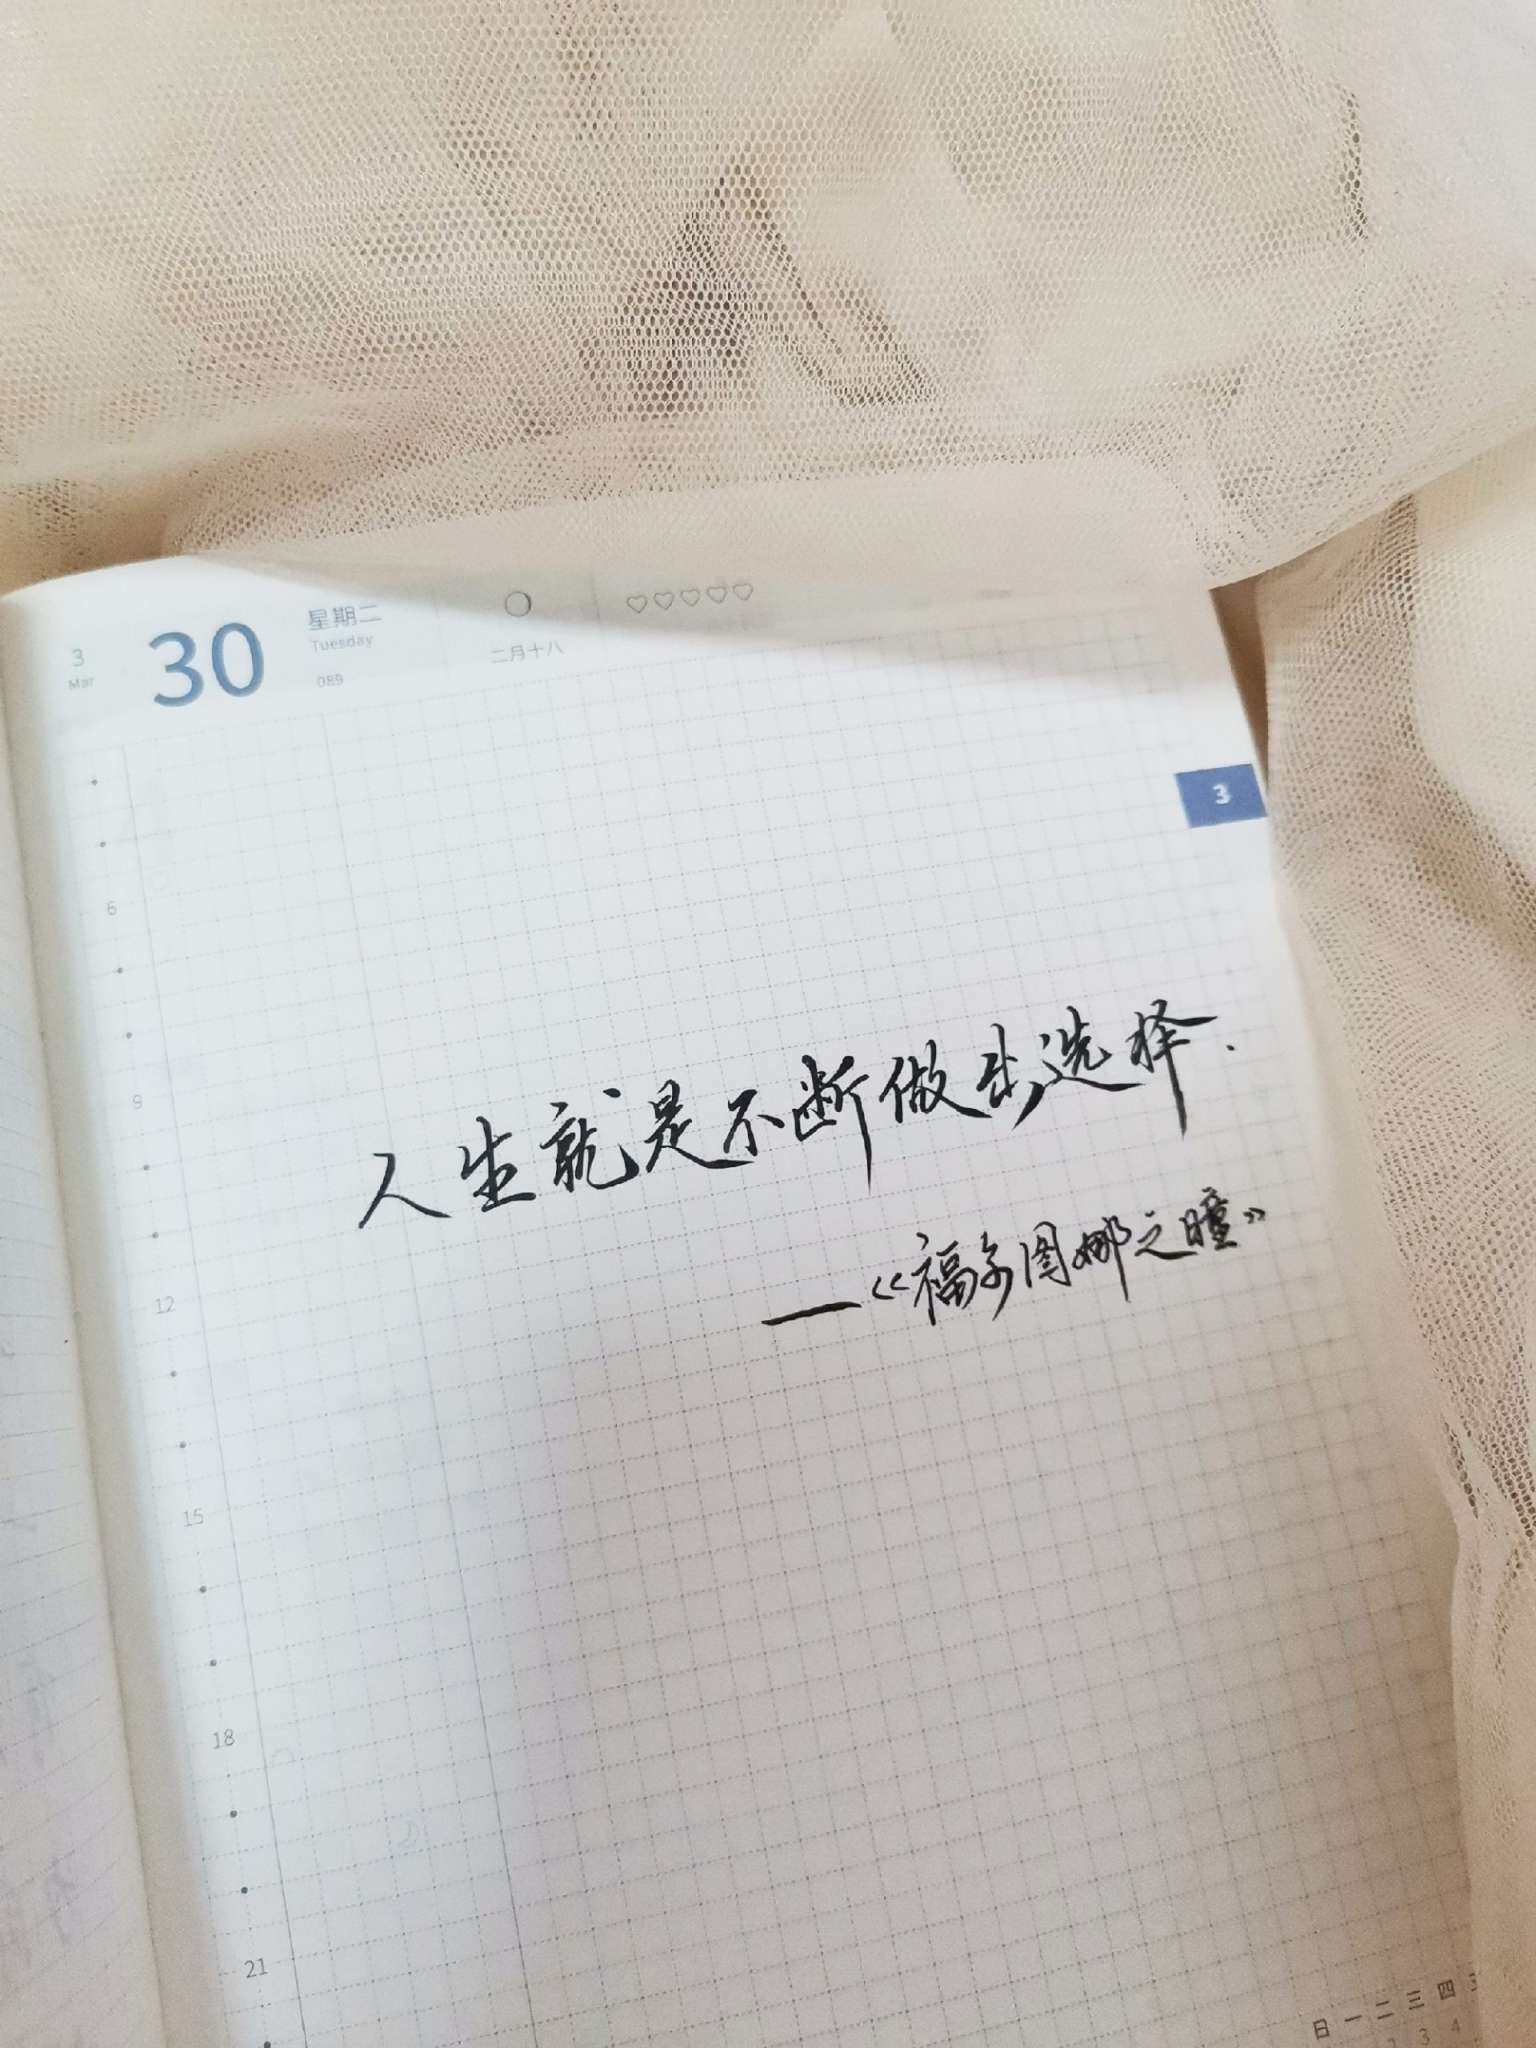 3
Mar
30
星期二
Tuesday
089
二月十八
3
6
9
人生就是不断做出选择.
—《福尔图娜之瞳》
12
15
18
21
日 一 二 三 四
2 3 4